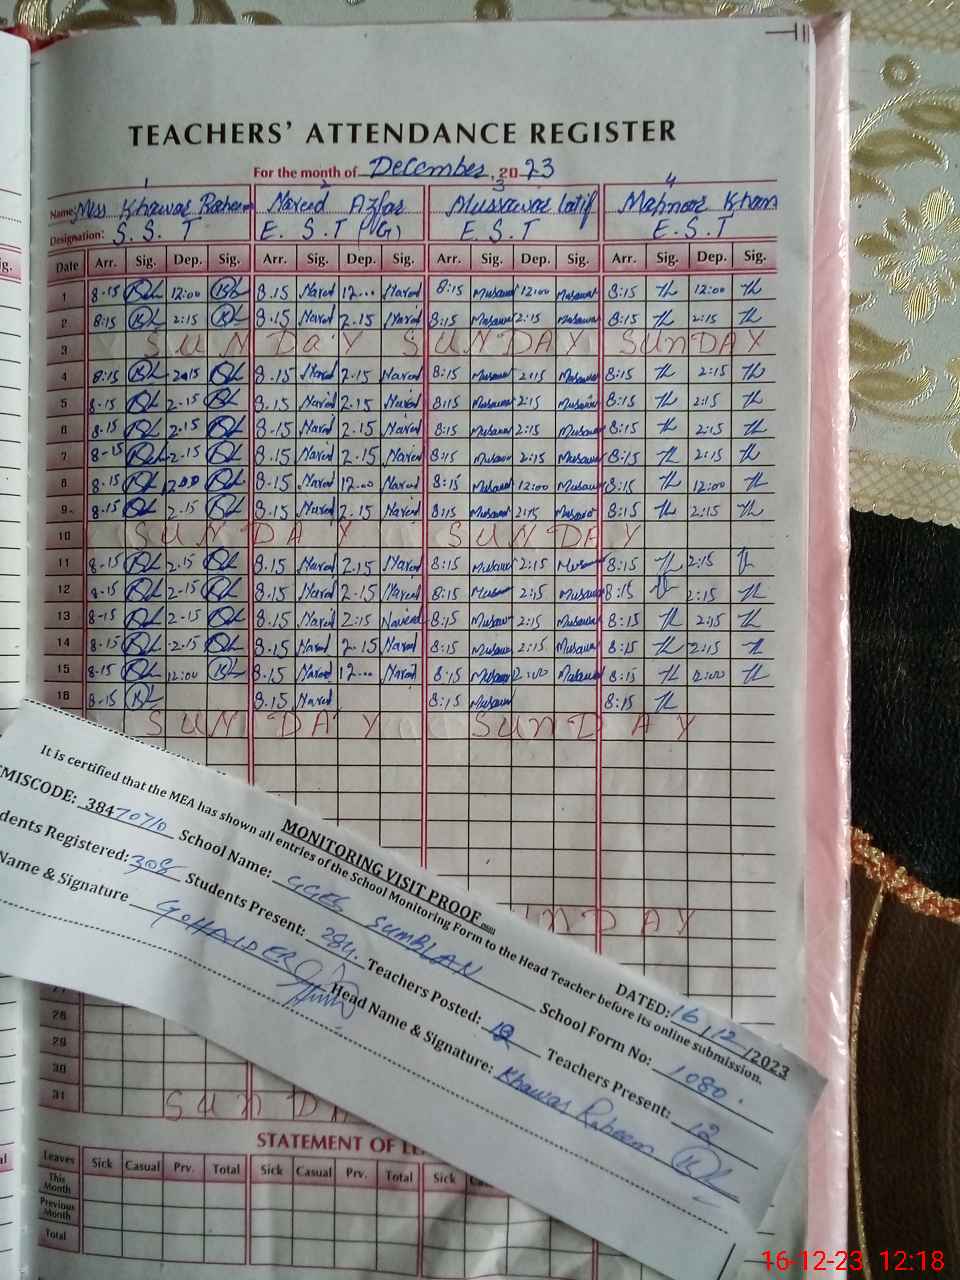 TEACHERS' ATTENDANCE REGISTER
For the month of December, 2023
1 2 3 4
Name: Miss Khawar Raheem Naveed Azfar Mussawar latif Mahnoor Khan
Designation: S. S. T E. S. T (PG) E. S. T E. S. T
Date Arr. Sig. Dep. Sig. Arr. Sig. Dep. Sig. Arr. Sig. Dep. Sig. Arr. Sig. Dep. Sig.
1 8-15 12:00 8.15 Naved 12... Naved 8:15 Musawar 12:00 Musawar 8:15 12:00
2 8:15 2:15 8.15 Naved 2.15 Naved 8:15 Musawar 2:15 Musawar 8:15 2:15
3 SUNDAY SUNDAY SUNDAY
4 8:15 2.15 8.15 Naved 2.15 Naved 8:15 Musawar 2:15 Musawar 8:15 2:15
5 8-15 2-15 8.15 Naved 2.15 Naved 8:15 Musawar 2:15 Musawar 8:15 2:15
6 8-15 2.15 8-15 Naved 2.15 Naved 8:15 Musawar 2:15 Musawar 8:15 2:15
7 8-15 2-15 8.15 Naved 2.15 Naved 8:15 Musawar 2:15 Musawar 8:15 2:15
8 8-15 12.00 8.15 Naved 12.00 Naved 8:15 Musawar 12:00 Musawar 8:15 12:00
9 8-15 2-15 8.15 Naved 2.15 Naved 8:15 Musawar 2:15 Musawar 8:15 2:15
10 SUNDAY SUNDAY
11 8-15 2-15 8.15 Naved 2.15 Naved 8:15 Musawar 2:15 Musawar 8:15 2:15
12 8-15 2-15 8.15 Naved 2.15 Naved 8:15 Musawar 2:15 Musawar 8:15 2:15
13 8-15 2-15 8.15 Naved 2:15 Naveed 8:15 Musawar 2:15 Musawar 8:15 2:15
14 8-15 2-15 8.15 Naved 2.15 Naved 8:15 Musawar 2:15 Musawar 8:15 2:15
15 8-15 12:00 8.15 Naved 12... Naved 8:15 Musawar 12:00 Musawar 8:15 12:00
16 8-15 8.15 Naved 8:15 Musawar 8:15
SUNDAY SUNDAY
NDAY
28
29
30
31 SUNDA
MONITORING VISIT PROOF
DATED: 16/12/2023
It is certified that the MEA has shown all entries of the School Monitoring Form to the Head Teacher before its online submission.
EMISCODE: 38470710 School Name: GGES SUMBLAN School Form No: 1080.
dents Registered: 308 Students Present: 284. Teachers Posted: 12 Teachers Present: 12
Name & Signature G.HAIDER Head Name & Signature: Khawar Raheem
STATEMENT OF LE
Leaves Sick Casual Prv. Total Sick Casual Prv. Total Sick
This Month
Previous Month
Total
16-12-23 12:18